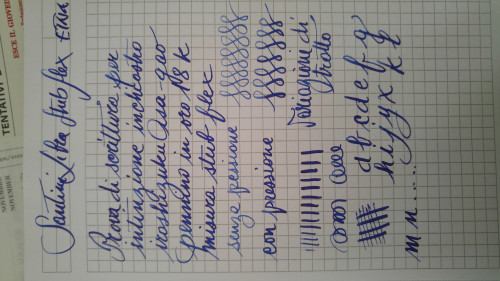 ESCE IL
TENTATIVI
NOVEMBER
Santini Libra stub flex
Prova di scrittura per
intinzione inchiostro
iroshizuku Asa-gao
pennino in oro 18 k
misura stub flex
senza pressione
con pressione
Variazione di
tratto
a b c d e f g
h i j y x k z
m n .....